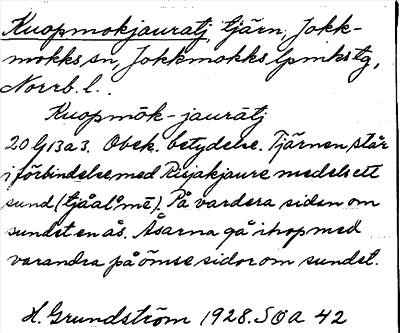 Kuopmokjauratj, tjärn, Jokk-
mokks sn, Jokkmokks lpmkstg,
Norrb. l.
Kuopmōk-jaurātj
20G13a3. Obek. betydelse. Tjärnen står
i förbindelse med Risjakjaure medels ett
sund (tjåalˈmē). På vardera siden om
sundet en ås. Åsarna gå ihop med
varandra på ömse sidor om sundet.
H. Grundström 1928. SOA 42